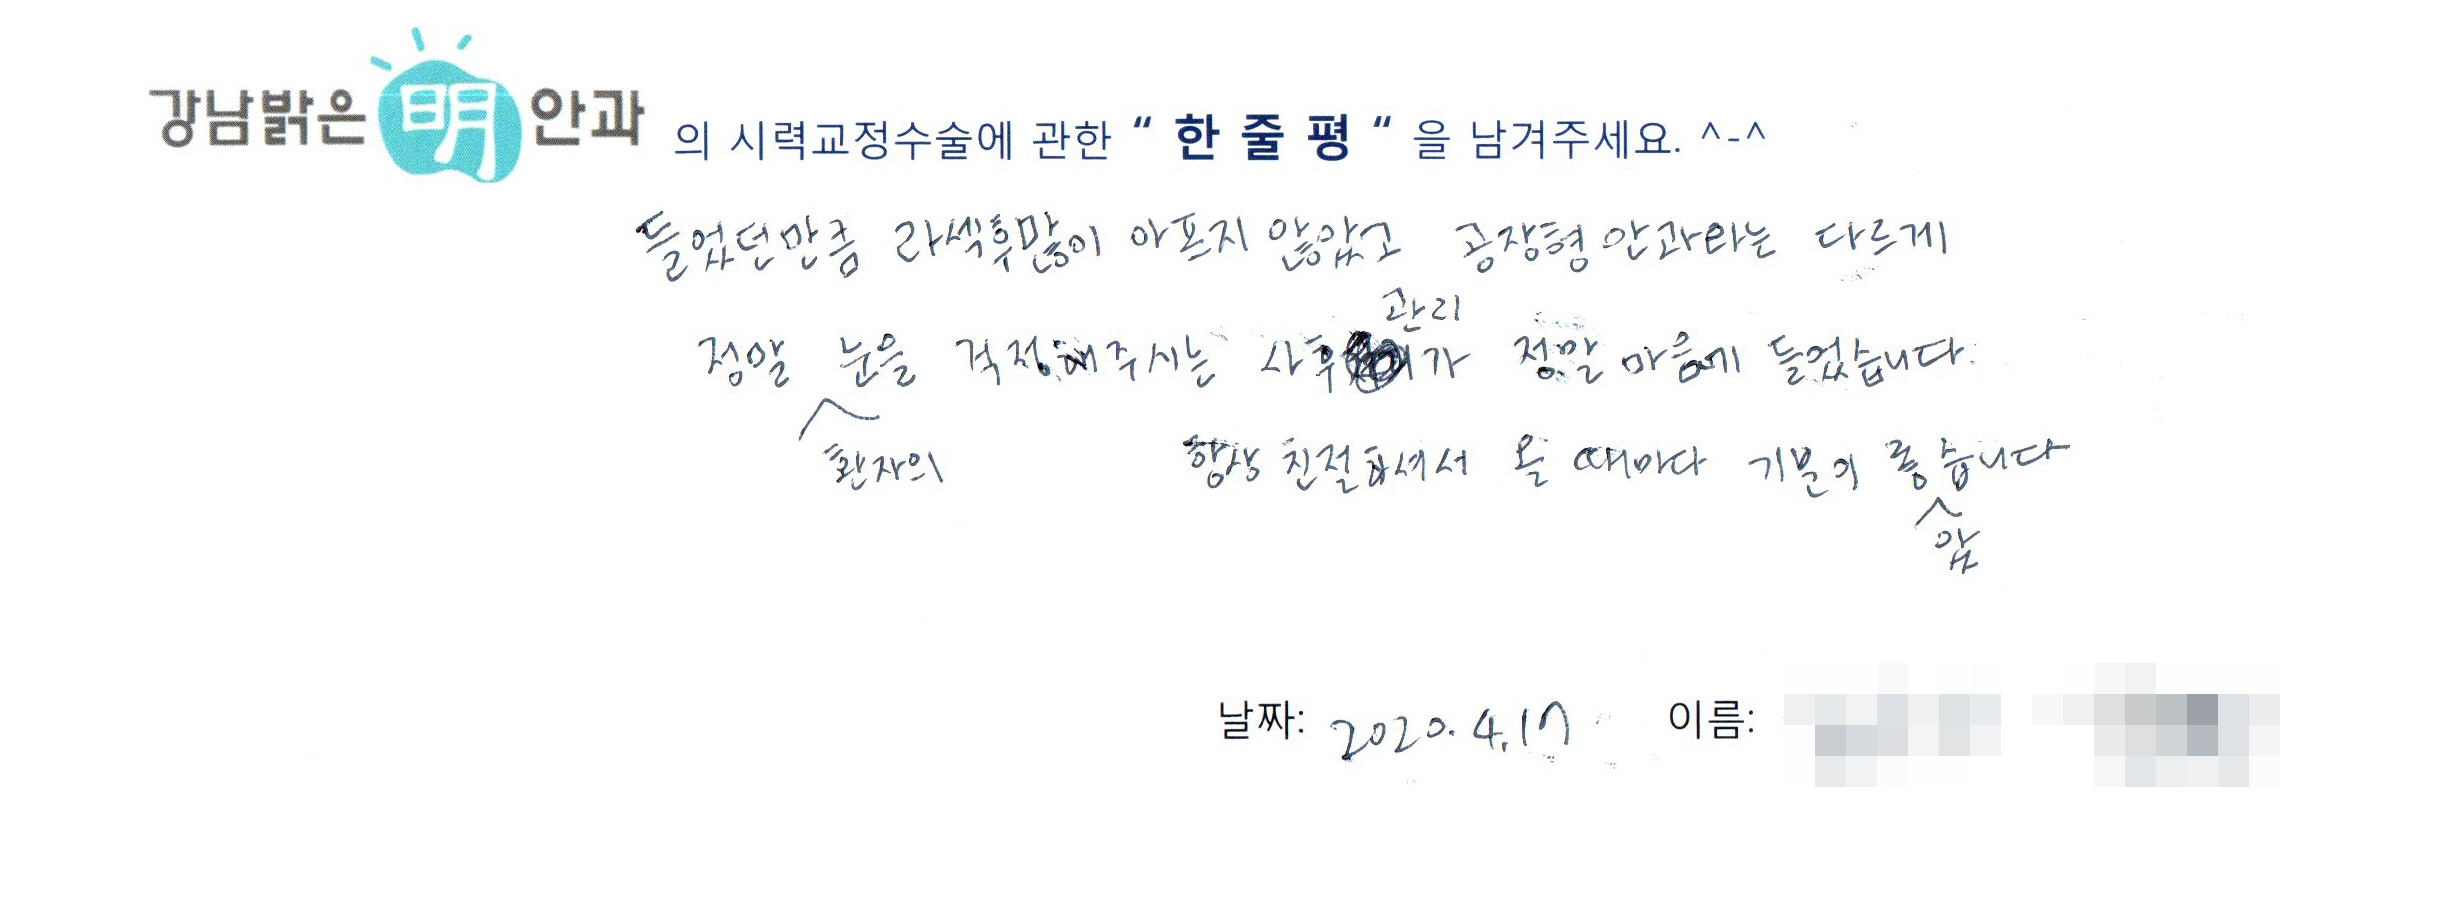 강남밝은 明 안과 의 시력교정수술에 관한 “ 한 줄 평 “ 을 남겨주세요. ^-^
들었던만큼 라섹후많이 아프지 않았고 공장형 안과라는 다르게
관리
정말 눈을 걱정해주시는 사후 가 정말 마음에 들었습니다.
환자의 항상 친절하셔서 올 때마다 기분이 좋습니다
았
날짜: 2020. 4. 17 이름: